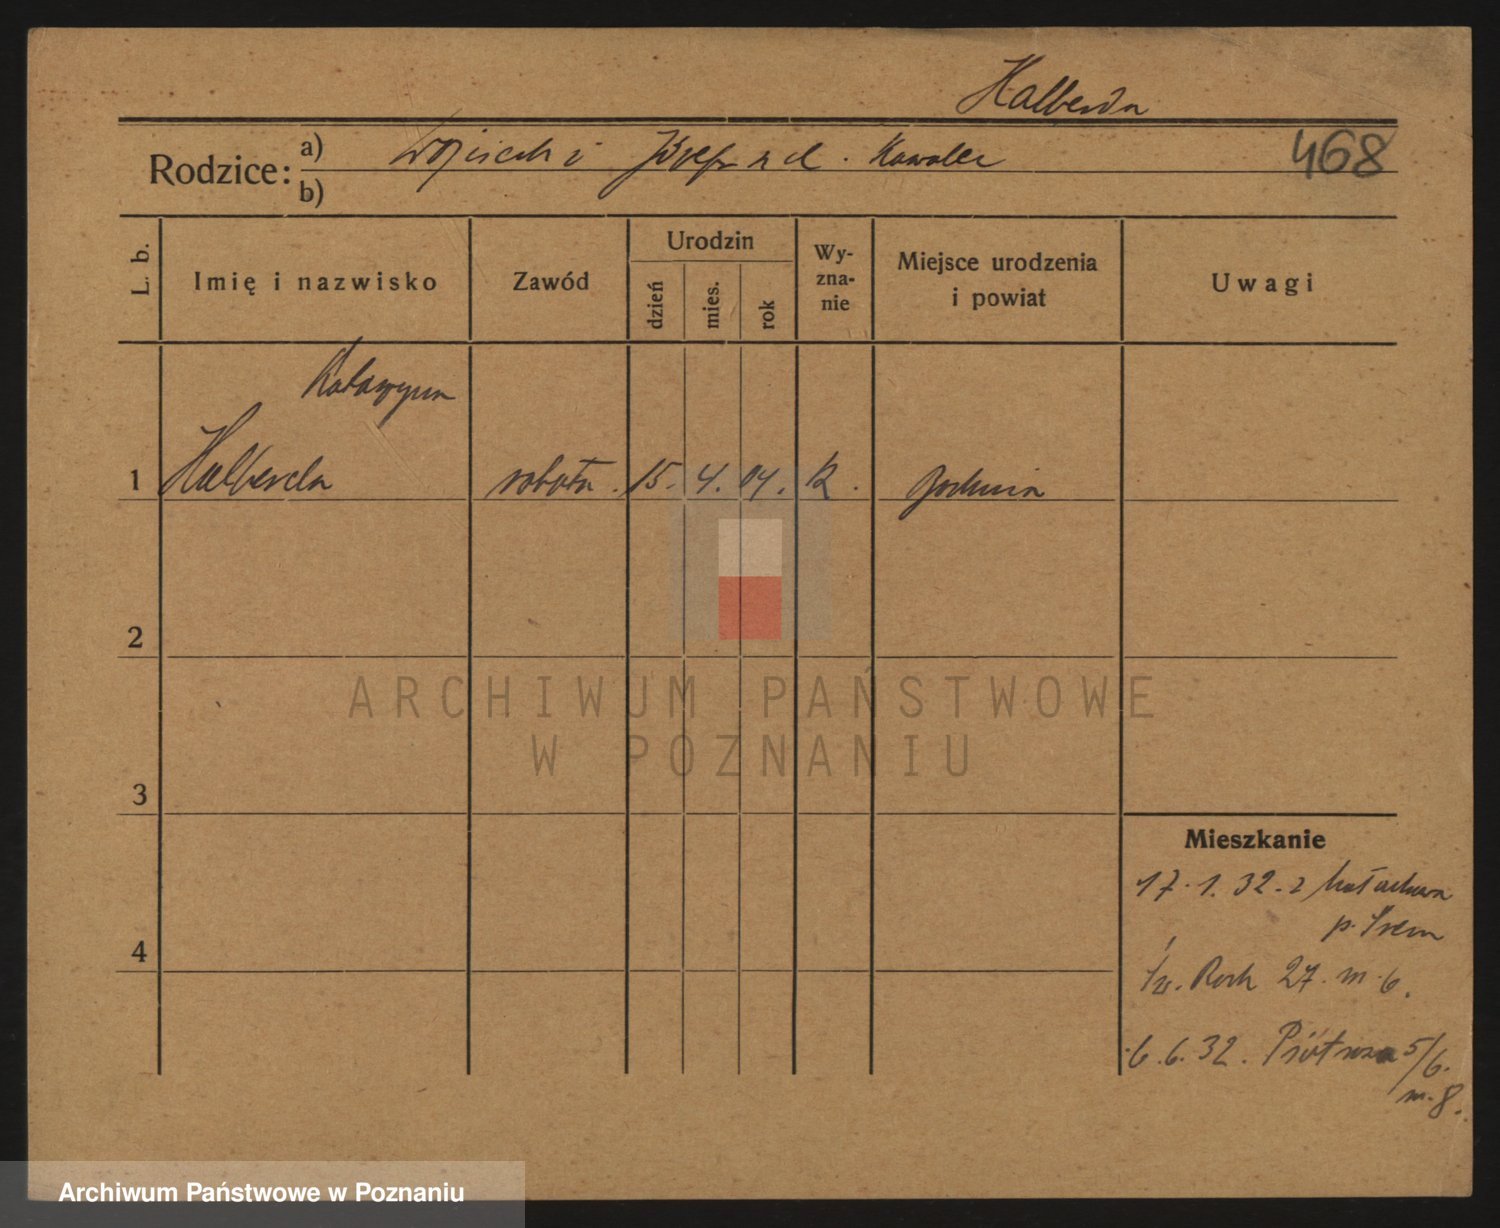 Halberda
Rodzice: a) Wojciech i Józef z d. Kowalec
b)
468
L. b.
Imię i nazwisko
Zawód
Urodzin
dzień
mies.
rok
Wy-
zna-
nie
Miejsce urodzenia
i powiat
Uwagi
Katarzyna
1 Halberda robotn. 15. 4. 04. K.
2
3
4
ARCHIWUM PAŃSTWOWE
W POZNANIU
Mieszkanie
17.1.32. z
p. Śrem
Św. Roch 27. m. 6.
6.6.32. 5/6.
m. 8.
Archiwum Państwowe w Poznaniu